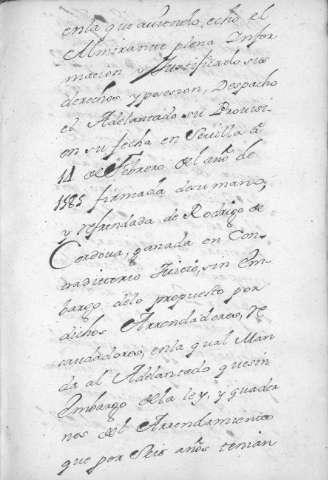 en la que aviendo, echo el
Almirante plena Infor
macion y Justificado sus
derechos y posesion, Despacho
el Adelantado su Provisi
on su fecha en Sevilla â
11 de Febrero del año de
1585 firmada de su mano,
y refrendada de Rodrigo de
Cordova, ganada en Con
tradictorio Juicio, sin Em
bargo delo propuesto por
dichos Arrendadores, Re
caudadores, en la qual Man
da al Adelantado que sin
Embargo de la ley, y quader
nos del Arrendamiento
que por Seis años tenian